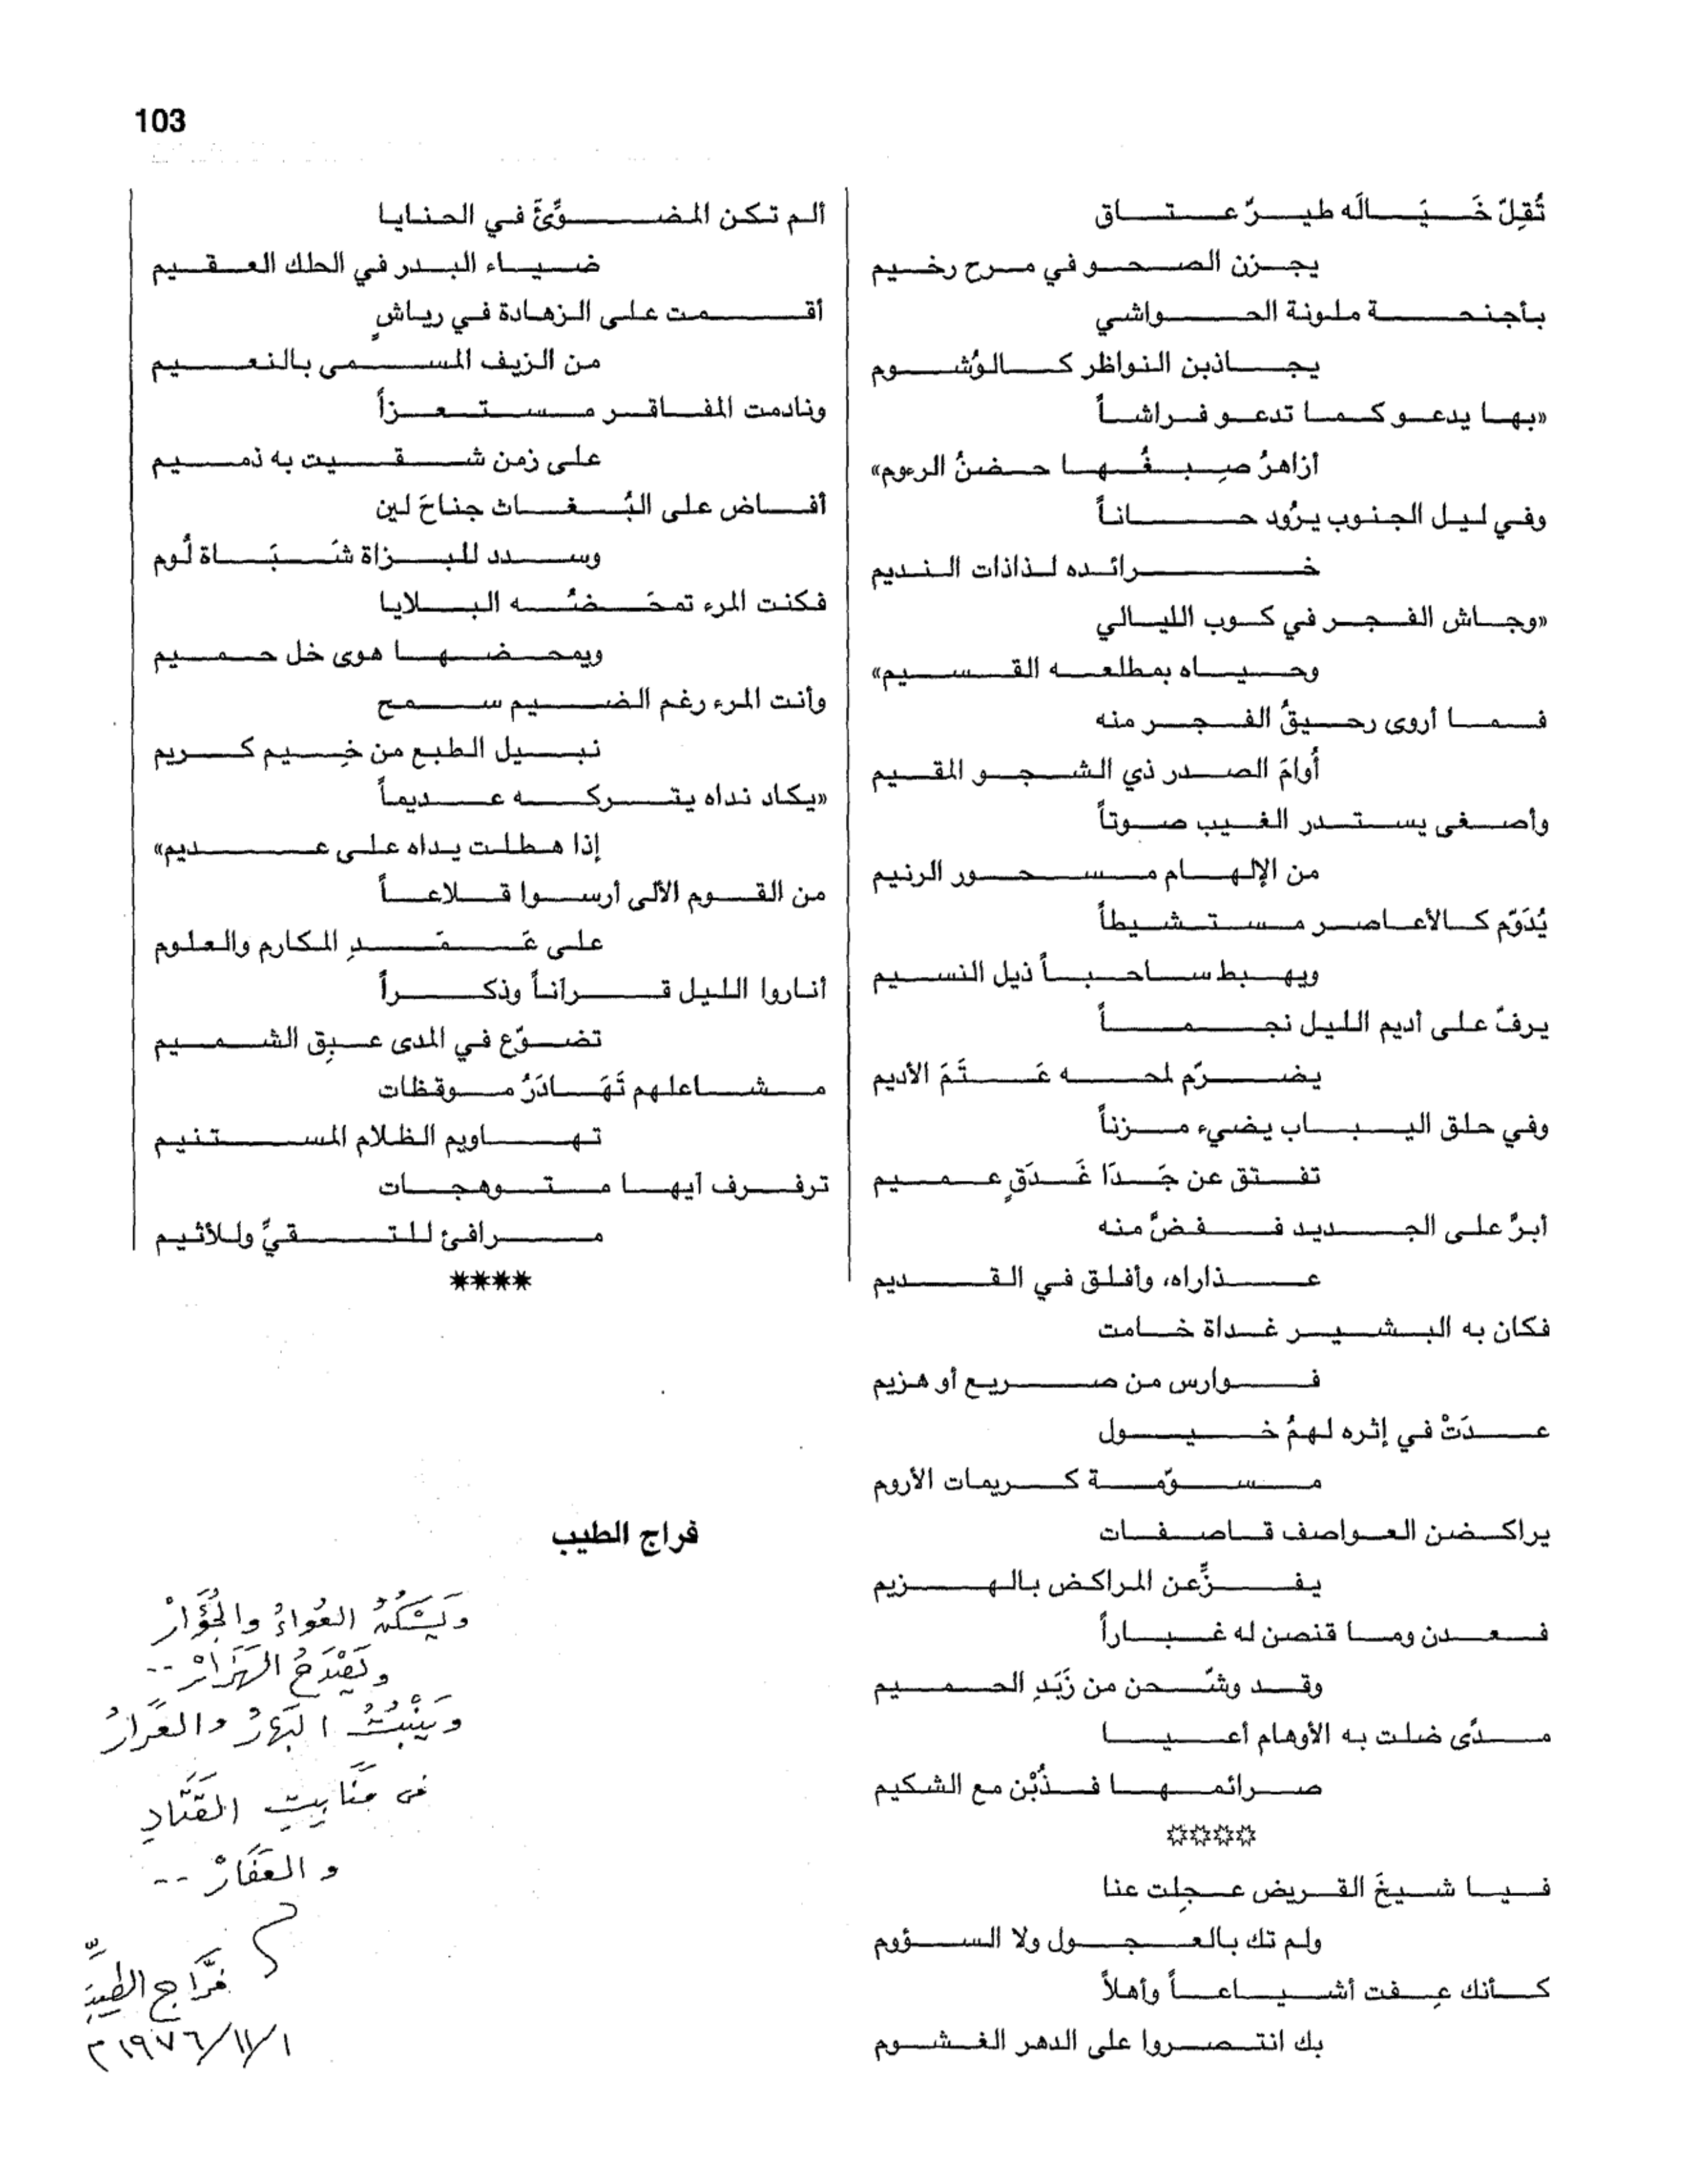 103
تُقِلّ خَيَالَه طيرٌ عتاق
يجزن الصحو في مرح رخيم
بأجنحة ملونة الحواشي
يجاذبن النواظر كالوُشوم
«بها يدعو كما تدعو فراشاً
أزاهرُ صِبغُها حضنُ الرءوم»
وفي ليل الجنوب يرُود حاناً
خرائده لذاذات النديم
«وجاش الفجر في كوب الليالي
وحياه بمطلعه القسيم»
فما أروى رحيقُ الفجر منه
أُوامَ الصدر ذي الشجو المقيم
وأصغى يستدر الغيب صوتاً
من الإلهام مسحور الرنيم
يُدَوّم كالأعاصر مستشيطاً
ويهبط ساحباً ذيل النسيم
يرفّ على أديم الليل نجماً
يضرّم لمحه عَتَمَ الأديم
وفي حلق اليباب يضيء مزناً
تفتق عن جَدَا غَدَقٍ عميم
أبرَّ على الجديد ففضَّ منه
عذاراه، وأفلق في القديم
فكان به البشير غداة خامت
فوارس من صريع أو هزيم
عدَتْ في إثره لهمُ خيول
مسوّمة كريمات الأروم
يراكضن العواصف قاصفات
يفزِّعن المراكض بالهزيم
فعدن وما قنصن له غباراً
وقد وشّحن من زَبَدِ الحميم
مدًى ضلت به الأوهام أعيا
صرائمها فذُبْن مع الشكيم
✲✲✲✲
فيا شيخَ القريض عجِلت عنا
ولم تك بالعجول ولا السؤوم
كأنك عِفت أشياعاً وأهلاً
بك انتصروا على الدهر الغشوم
ألم تكن المضوِّئَ في الحنايا
ضياء البدر في الحلك العقيم
أقمت على الزهادة في رياشٍ
من الزيف المسمى بالنعيم
ونادمت المفاقر مستعزاً
على زمن شقيت به ذميم
أفاض على البُغاث جناحَ لين
وسدد للبزاة شَبَاة لُوم
فكنت المرء تمحَضُه البلايا
ويمحضها هوى خل حميم
وأنت المرء رغم الضيم سمح
نبيل الطبع من خِيم كريم
«يكاد نداه يتركه عديماً
إذا هطلت يداه على عديم»
من القوم الألى أرسوا قلاعاً
على عَمَدِ المكارم والعلوم
أناروا الليل قرآناً وذكراً
تضوّع في المدى عبِق الشميم
مشاعلهم تَهَادَرُ موقظات
تهاويم الظلام المستنيم
ترفرف آيها متوهجات
مرافئ للتقيِّ وللأثيم
****
فراج الطيب
وَيَسْكُتُ العُواءُ والجُؤَارْ
وَيَصْدَحُ الهَزَارْ --
وَيَنْبُتُ البَهَارُ والعَرَارُ
في مَنَابِتِ القَتَادِ
والعَفَارْ --
فرَّاج الطيِّب
١/١١/١٩٧٦ م